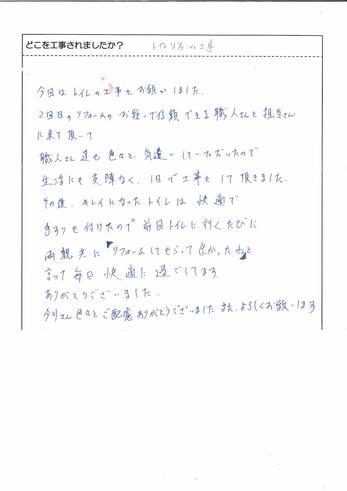 どこを工事されましたか？ トイレリフォーム工事
今日は トイレの工事を お願いしました.
2回目のリフォームの お願いで信頼できる 職人さんと 担当さん
に来て頂いて
職人さん達も 色々と 気遣いして いただいたので
生活にも 支障なく. 1日で工事をして頂きました.
その後. キレイになったトイレは 快適で
手すりも付けたので 毎日トイレに行くたびに
両親共に『リフォームしてもらって良かったね』と
言って毎日 快適に過ごしてます
ありがとうございました.
今川さん色々とご配慮ありがとうございました また. よろしくお願いします